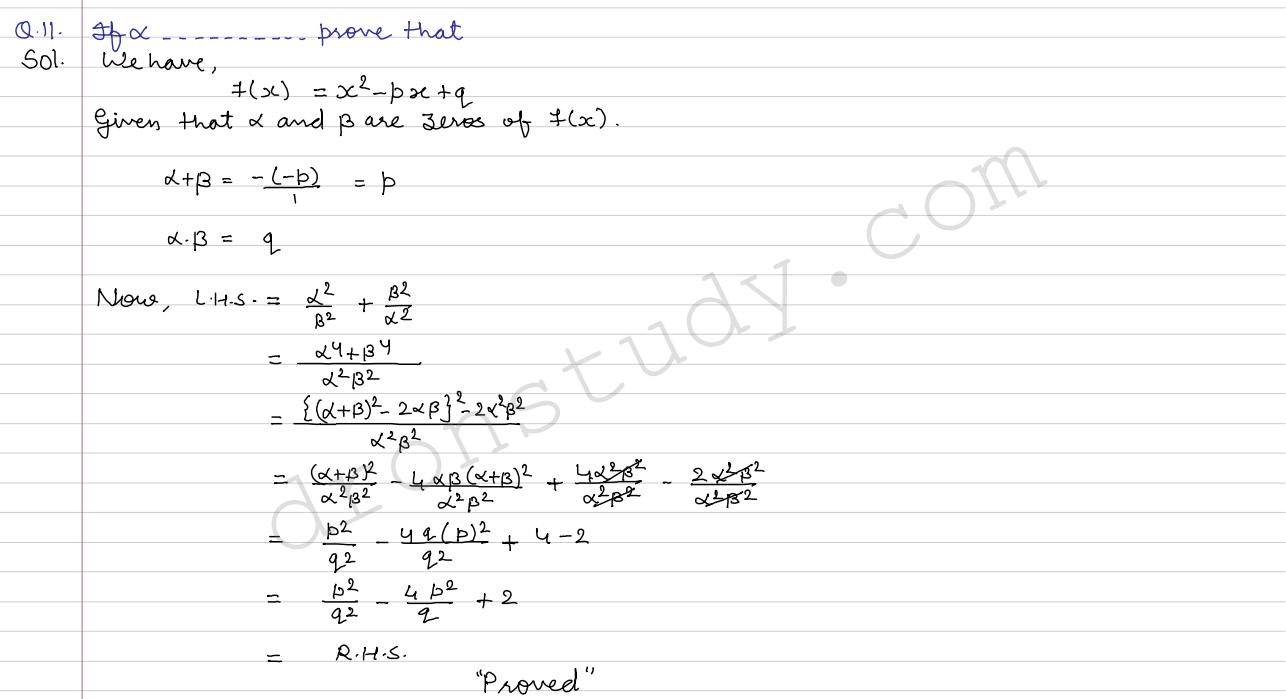 Q.11. If α ----------- prove that
Sol. We have,
f(x) = x² - px + q
Given that α and β are zeros of f(x).
α+β = -(-p)/1 = p
α.β = q
Now, L.H.S. = α²/β² + β²/α²
= (α⁴+β⁴)/(α²β²)
= ({(α+β)² - 2αβ}² - 2α²β²)/(α²β²)
= (α+β)²/(α²β²) - 4αβ(α+β)²/(α²β²) + 4α²β²/(α²β²) - 2α²β²/(α²β²)
= p²/q² - 4q(p)²/q² + 4 - 2
= p²/q² - 4p²/q + 2
= R.H.S.
"Proved"
dronstudy.com